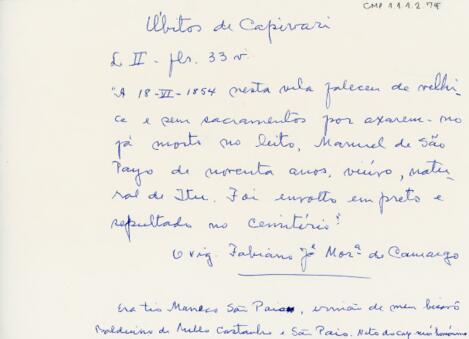 CMP 1.1.1.2.79
Óbitos de Capivari
L II - fls. 33 v.
"A 18-VI-1854 nesta vila faleceu de velhi-
ce e sem sacramentos por axarem-no
já morto no leito, Manuel de São
Payo de noventa anos, viúvo, natu-
ral de Itu. Foi envolto em preto e
sepultado no cemitério"
O vig. Fabiano Jª Morª de Camargo
Era tio Maneco São Paio, irmão de meu bisavô
Balduino de Mello Castanho e São Paio. Neto do cap